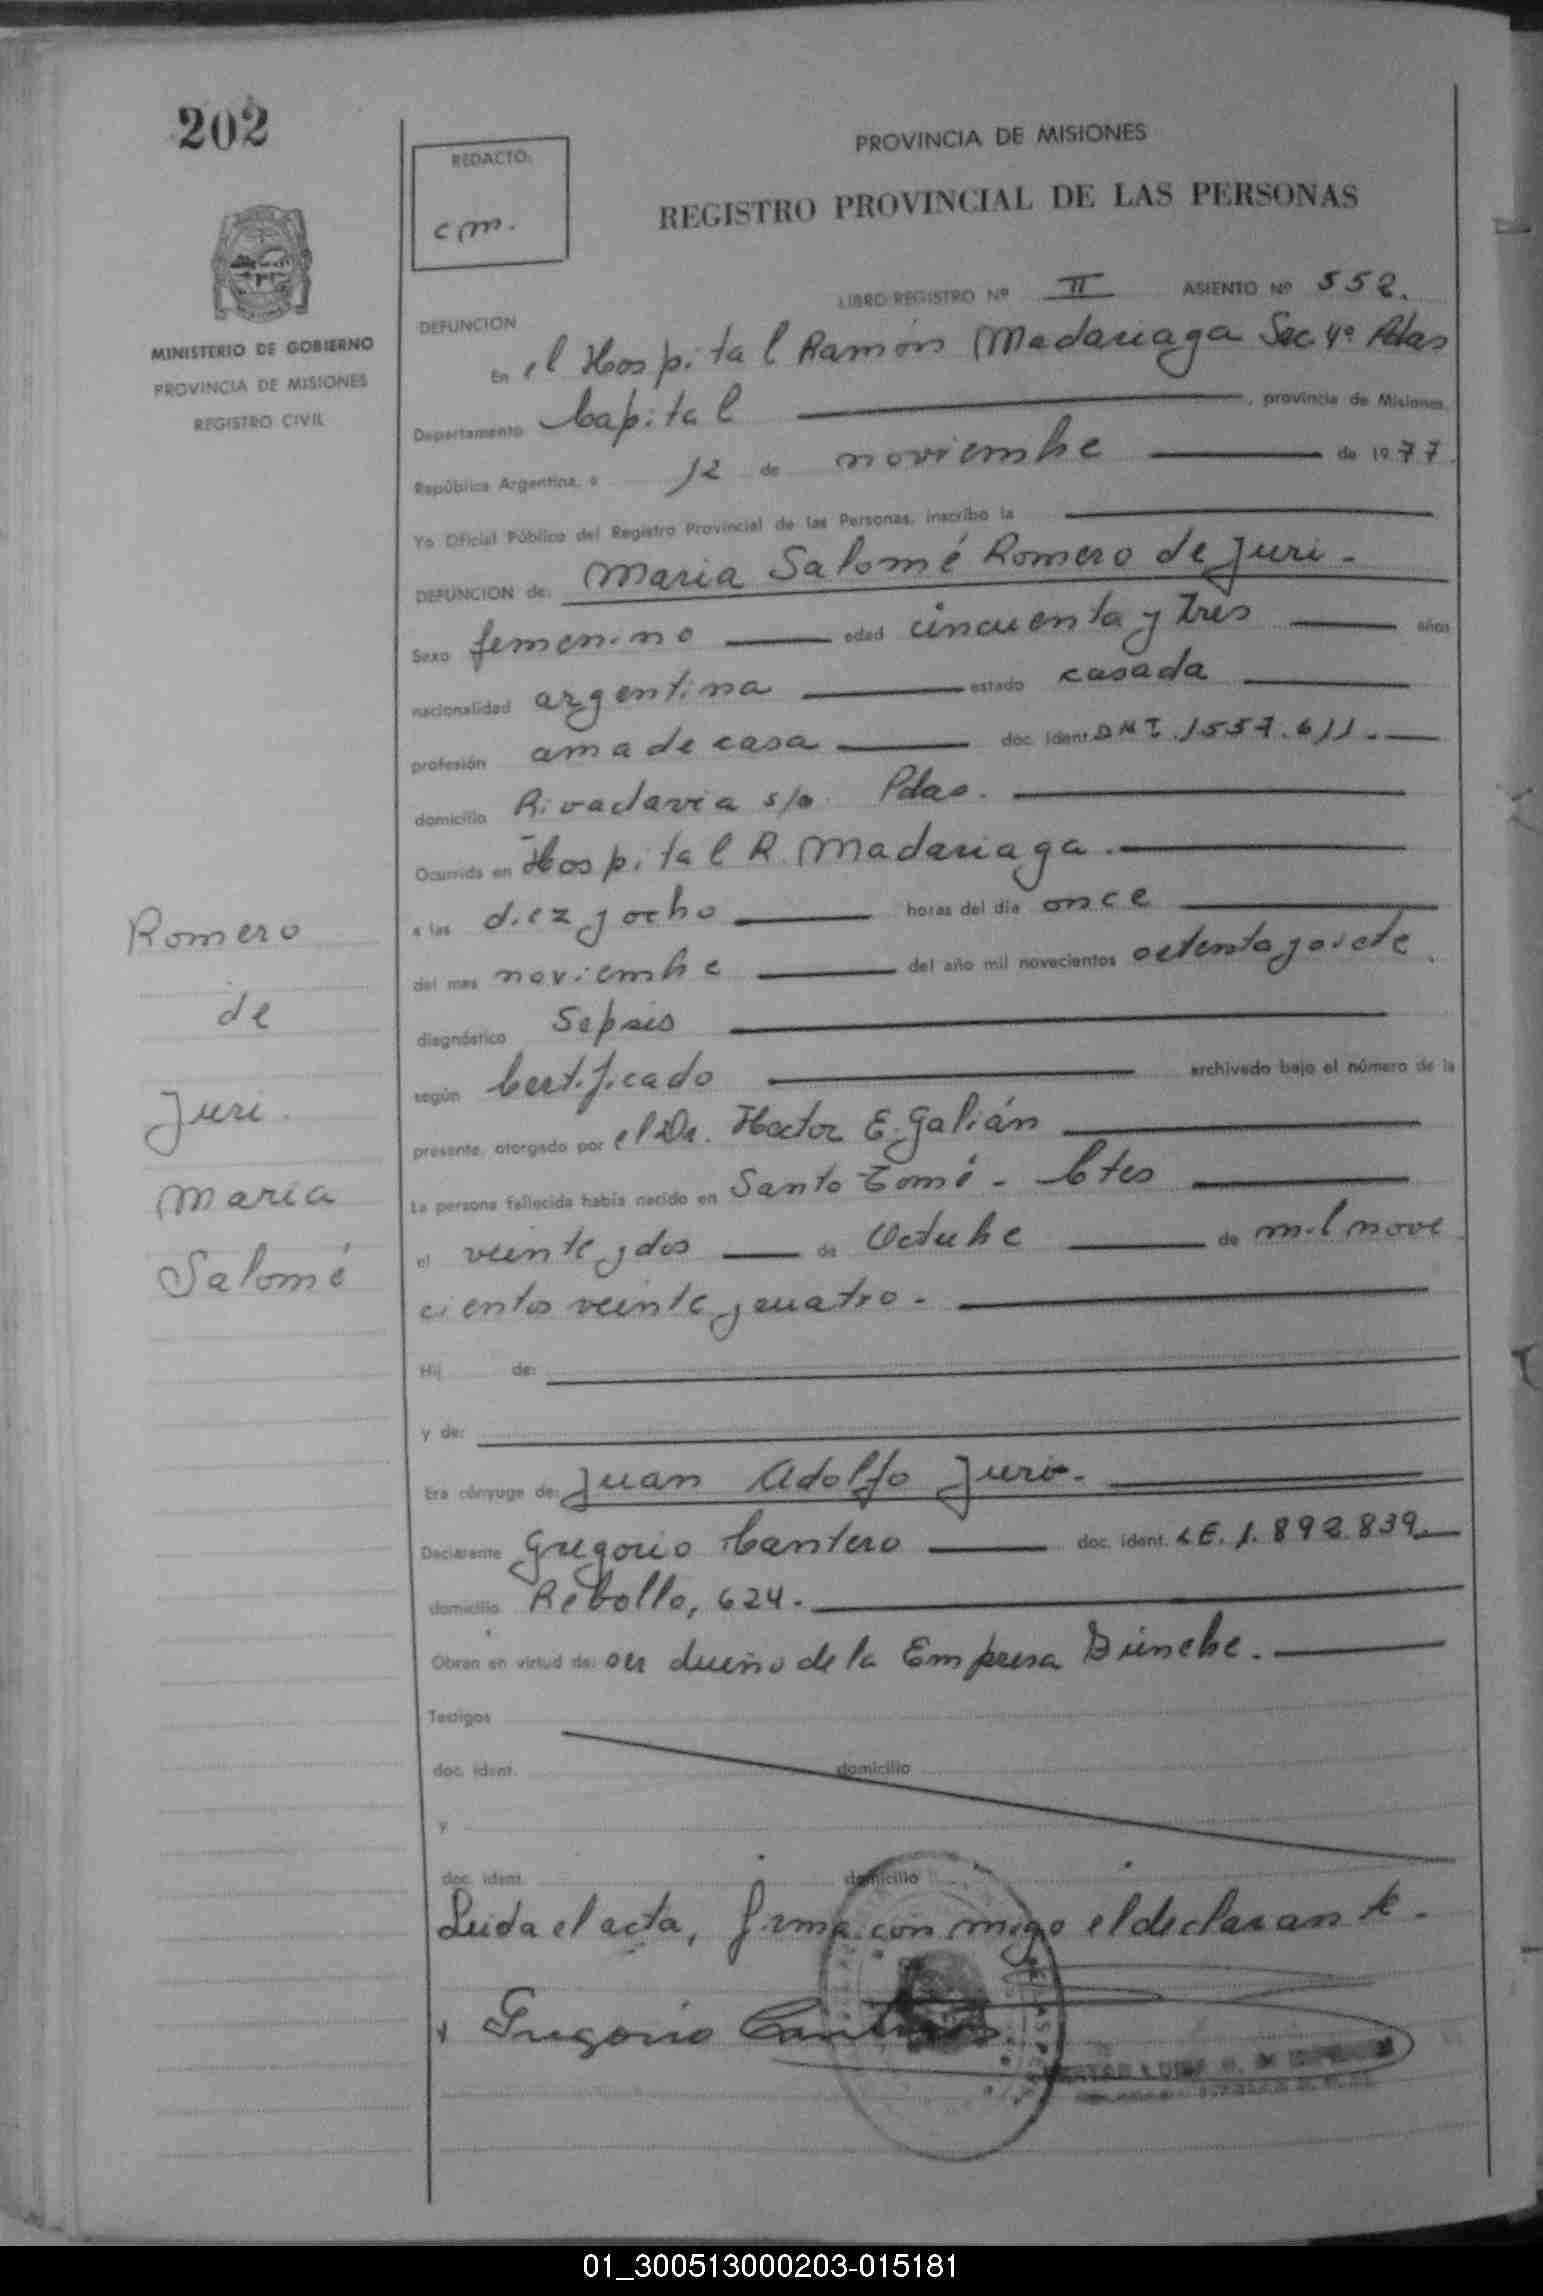 202
REDACTO:
cm.
PROVINCIA DE MISIONES
REGISTRO PROVINCIAL DE LAS PERSONAS
MINISTERIO DE GOBIERNO
PROVINCIA DE MISIONES
REGISTRO CIVIL
LIBRO REGISTRO Nº II ASIENTO Nº 552.
DEFUNCION
En el Hospital Ramón Madariaga Sec. 4ª Pdas
Departamento Capital, provincia de Misiones,
República Argentina, a 12 de noviembre de 1977.
Yo Oficial Público del Registro Provincial de las Personas, inscribo la
DEFUNCION de: Maria Salomé Romero de Juri -
Sexo femenino edad cincuenta y tres años
nacionalidad argentina estado casada
profesión ama de casa doc. ident. DNI. 1557.611.
domicilio Rivadavia s/n. Pdas.
Ocurrida en Hospital R. Madariaga.
a las diez y ocho horas del día once
del mes noviembre del año mil novecientos setenta y siete.
diagnóstico Sepsis
según Certificado archivado bajo el número de la
presente, otorgado por el Dr. Hector E. Galián
La persona fallecida había nacido en Santo Tomé - Ctes
el veinte y dos de Octubre de mil nove
cientos veinte y cuatro.
Hij de:
y de:
Era cónyuge de: Juan Adolfo Juri.
Declarante Gregorio Cantero doc. ident. LE. 1.892.839.
domicilio Rebollo, 624.
Obran en virtud de: ser dueño de la Empresa Fúnebre.
Testigos
doc. ident. domicilio
y
doc. ident. domicilio
Leida el acta, firma con migo el declarante.
Gregorio Cantero
Romero
de
Juri
Maria
Salomé
01_300513000203-015181